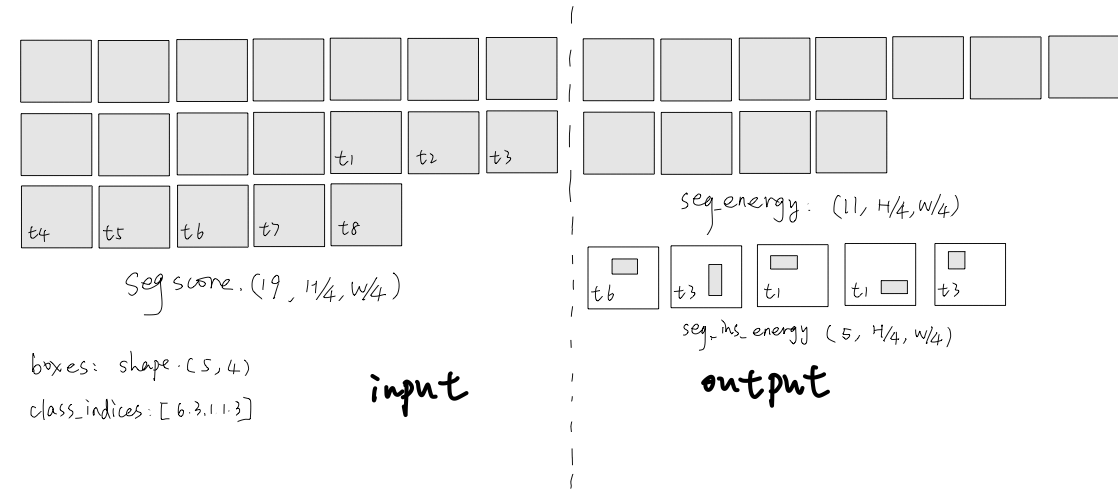 t1 t2 t3
t4 t5 t6 t7 t8
seg score. (19, H/4, W/4)
boxes: shape. (5, 4)
class_indices: [6.3.1.1.3]
input
seg_energy: (11, H/4, W/4)
t6 t3 t1 t1 t3
seg_ins_energy (5, H/4, W/4)
output